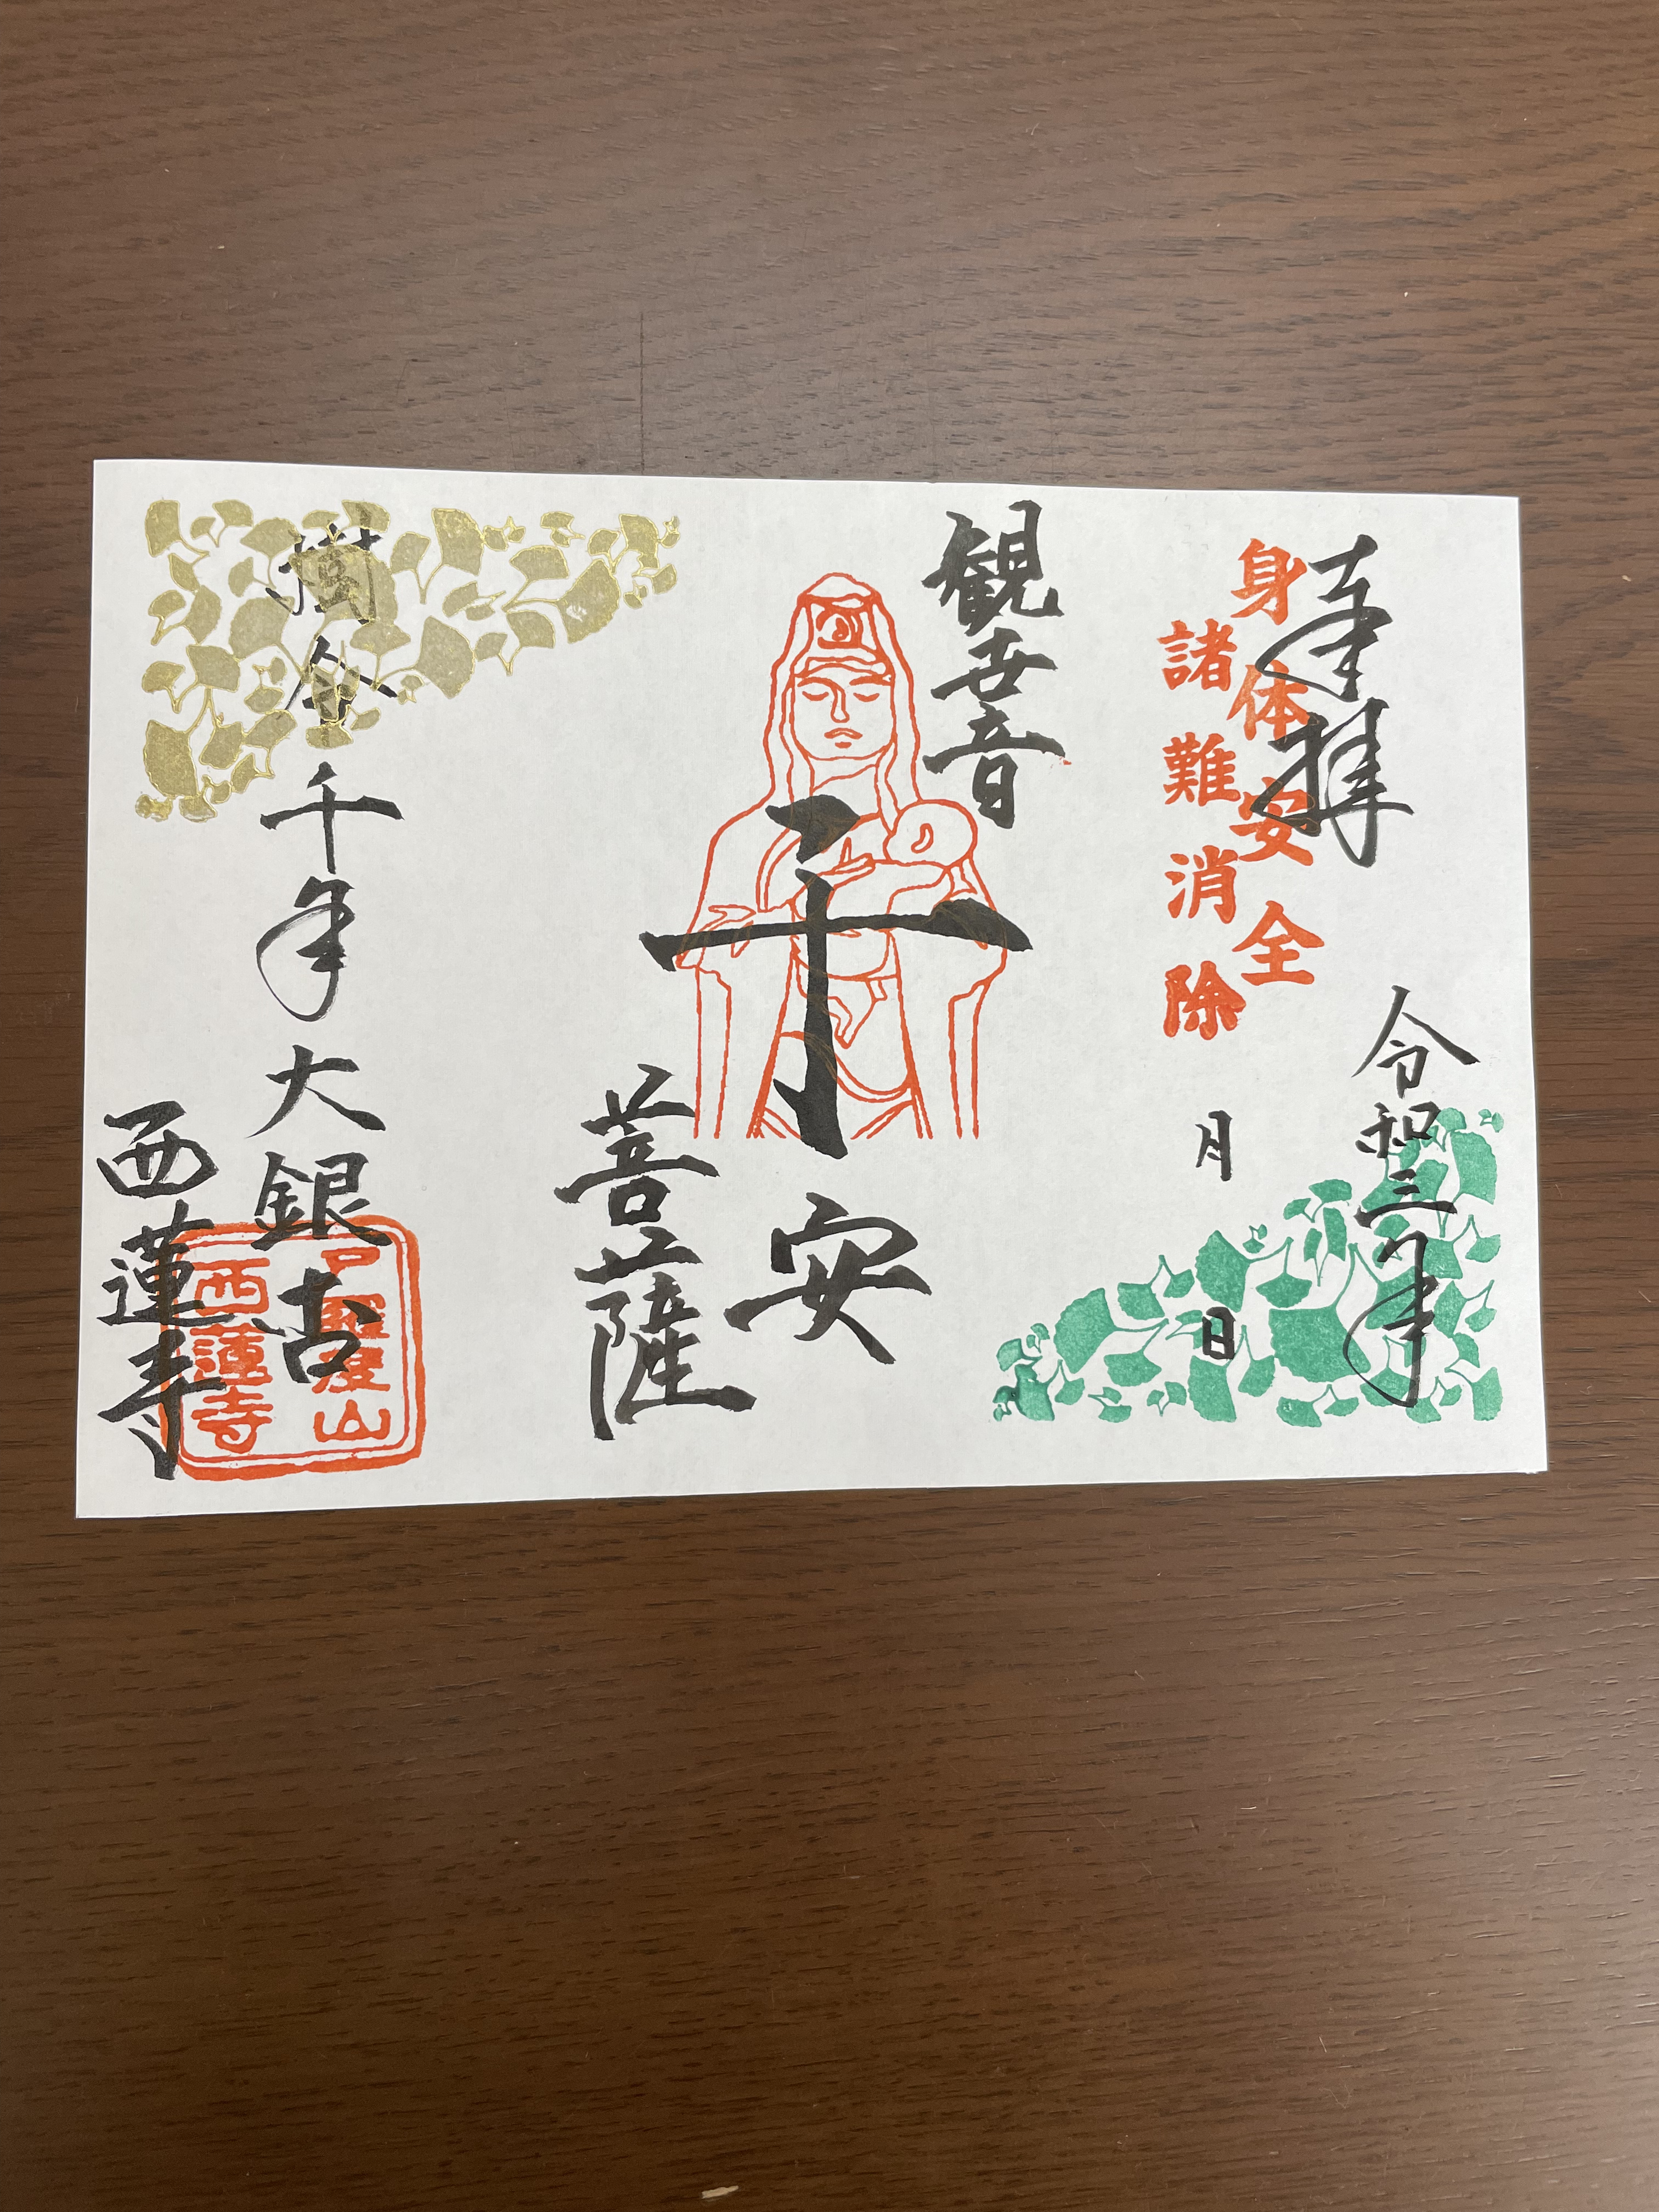 奉拝
令和三年
月　日
身体安全
諸難消除
観世音
子安
菩薩
樹令千年大銀杏
西蓮寺
度山
西蓮寺